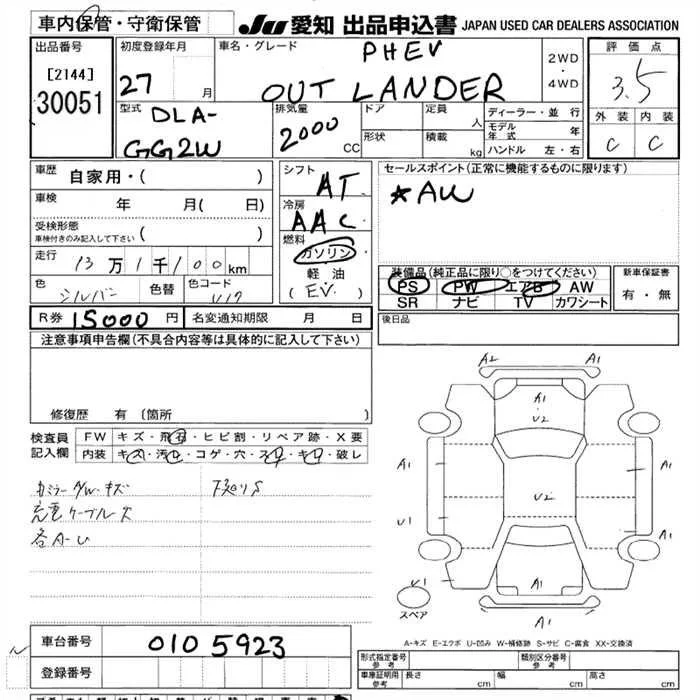 車内保管・守衛保管
JU 愛知 出品申込書 JAPAN USED CAR DEALERS ASSOCIATION
出品番号
[2144]
30051
初度登録年月
27 月
車名・グレード
PHEV
OUT LANDER
2WD
・
4WD
評価点
3.5
外装 内装
C C
型式
DLA-
GG2W
排気量
2000 CC
ドア
形状
定員 人
積載 kg
ディーラー・並行
モデル年式 年
ハンドル 左・右
車歴 自家用・( )
車検 年 月( 日)
受検形態
車検付きのみ記入して下さい ( )
走行 13万1千100km
色 シルバー 色替 色コード U17
シフト
AT
冷房
AAC
燃料
ガソリン
軽油
(EV)
セールスポイント(正常に機能するものに限ります)
★AW
装備品(純正品に限り○をつけてください)
PS PW エアB AW
SR ナビ TV カワシート
新車保証書
有・無
R券 15000円 名変通知期限 月 日
後日品
注意事項申告欄(不具合内容等は具体的に記入して下さい)
修復歴 有 (箇所 )
検査員
記入欄
FW キズ・飛石・ヒビ割・リペア跡・X要
内装 キズ・汚レ・コゲ・穴・スレ・キレ・破レ
カミラーAW キズ
充電ケーブル欠
各A-U
下廻りS
A2 A1
A1
U2
A1 U1
U2
A1 A1
U1
A1
A1
スペア
A-キズ E-エクボ U-凹み W-補修跡 S-サビ C-腐食 XX-交換済
車台番号 0105923
登録番号
型式指定番号
参考
類別区分番号
参考
車庫証明用
参考
長さ cm 幅 cm 高さ cm